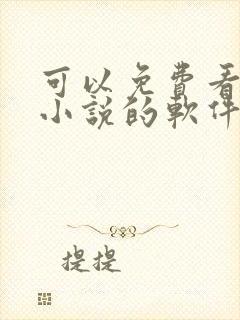 可以免費看
小說的軟件
提提